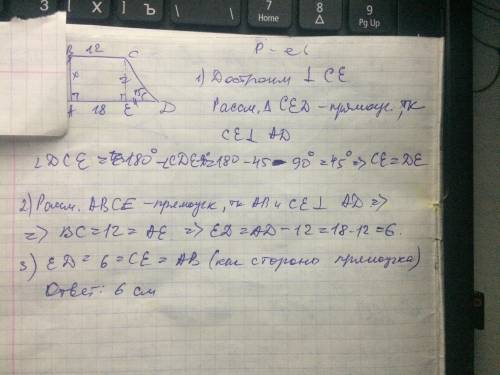 7
Home
8
9
Pg Up
B 12 C
x
?
45°
A 18 E D
Р-е
1) Достроим ⊥ CE
Рассм. Δ CED - прямоуг., тк
CE ⊥ AD
∠DCE = 180° - ∠CDE = 180 - 45 - 90° = 45° => CE = DE
2) Рассм. ABCE - прямоуг, тк AB и CE ⊥ AD =>
=> BC = 12 = AE => ED = AD - 12 = 18 - 12 = 6.
3) ED = 6 = CE = AB (как стороно прямоугка)
Ответ: 6 см